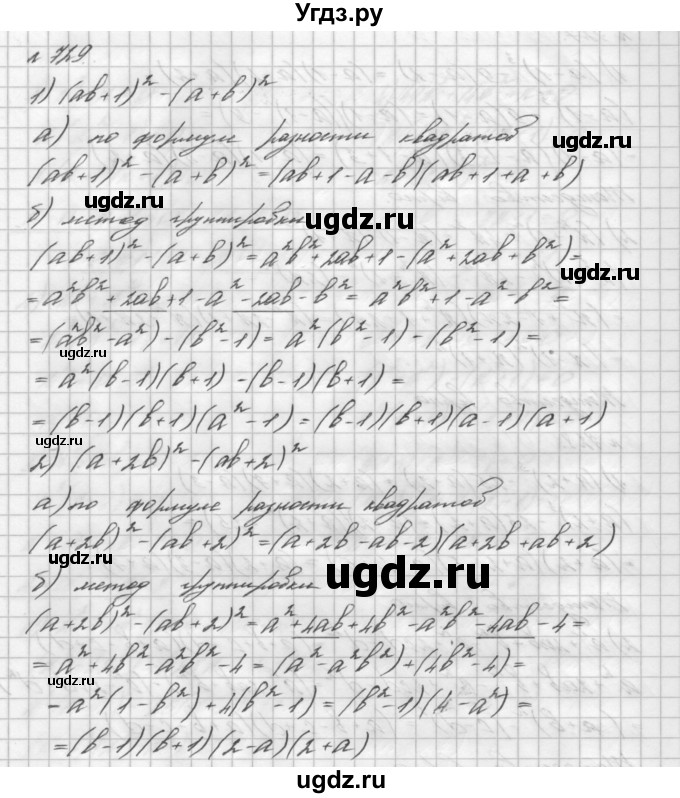 Угдз.ру
№ 729
1) (ab+1)² - (a+b)²
а) по формуле разности квадратов
ugdz.ru
(ab+1)² - (a+b)² = (ab+1-a-b)(ab+1+a+b)
ugdz.ru
ugdz.ru
б) метод группировки
ugdz.ru
(ab+1)² - (a+b)² = a²b²+2ab+1-(a²+2ab+b²)=
ugdz.ru
= a²b²+2ab+1-a²-2ab-b² = a²b²+1-a²-b² =
=(a²b²-a²)-(b²-1)= a²(b²-1)-(b²-1)=
ugdz.ru
= a²(b-1)(b+1) -(b-1)(b+1)=
= (b-1)(b+1)(a²-1) = (b-1)(b+1)(a-1)(a+1)
2) (a+2b)² -(ab+2)²
а) по формуле разности квадратов
(a+2b)² -(ab+2)² =(a+2b-ab-2)(a+2b+ab+2)
ugdz.ru
б) метод группировки
ugdz.ru
(a+2b)² -(ab+2)² = a²+4ab+4b²-a²b²-4ab-4=
= a²+4b²-a²b²-4 = (a²-a²b²)+(4b²-4)=
ugdz.ru
- a²(1-b²)+4(b²-1) = (b²-1)(4-a²) =
= (b-1)(b+1)(2-a)(2+a)
ugdz.ru
ugdz.ru